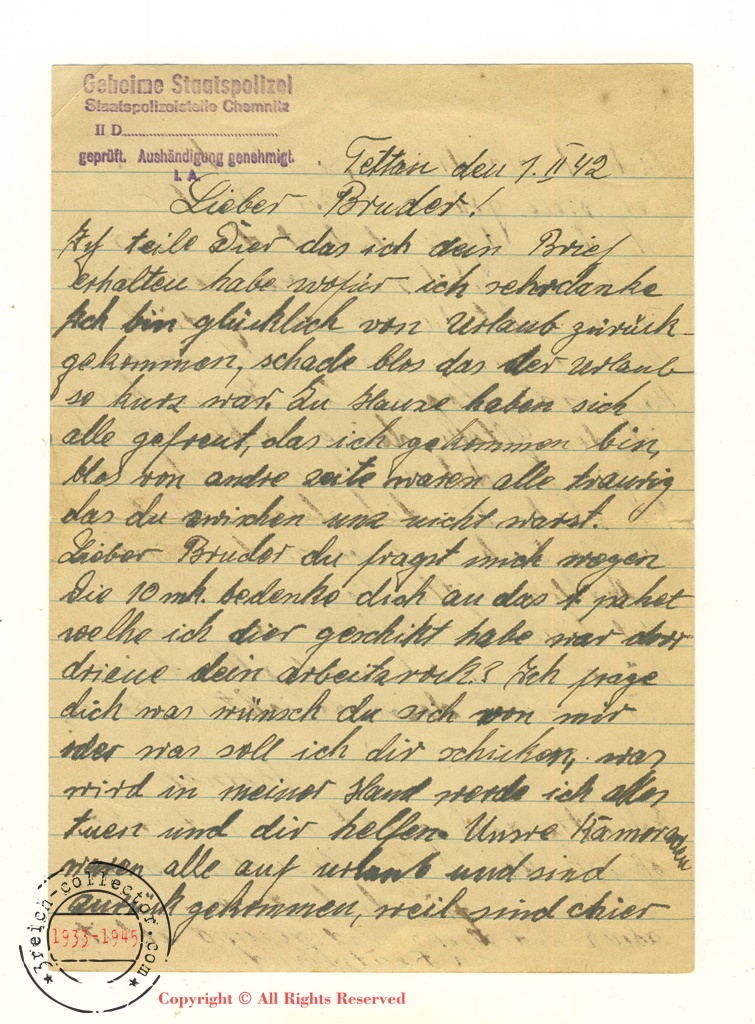 Geheime Staatspolizei
Staatspolizeistelle Chemnitz
II D
geprüft. Aushändigung genehmigt.
I. A.
Tettau den 1. II 42
Lieber Bruder!
Ich teile Dier das ich dein Brief
erhalten habe wofür ich sehrdanke
Ich bin glücklich von Urlaub zürück-
gekommen, schade blos das der Urlaub
so kurz war. Zu Hauze haben sich
alle gefreut, das ich gekommen bin,
blos von andre zeite waren alle traurig
das du zwischen unz nicht warst.
Lieber Bruder du fragst mich wegen
Die 10 mk. bedenke dich an das 1 paket
welhe ich dier geschikt habe war
driene dein arbeitzrock? Ich frage
dich was wünsch du sich von mir
oder was soll ich dir schicken, was
wird in meiner Hand werde ich alles
tuen und dir helfen. Unsre Kameraden
waren alle auf urlaub und sind
zurük gekommen, weil sind chier
3reich-collector.com
1933-1945
Copyright © All Rights Reserved